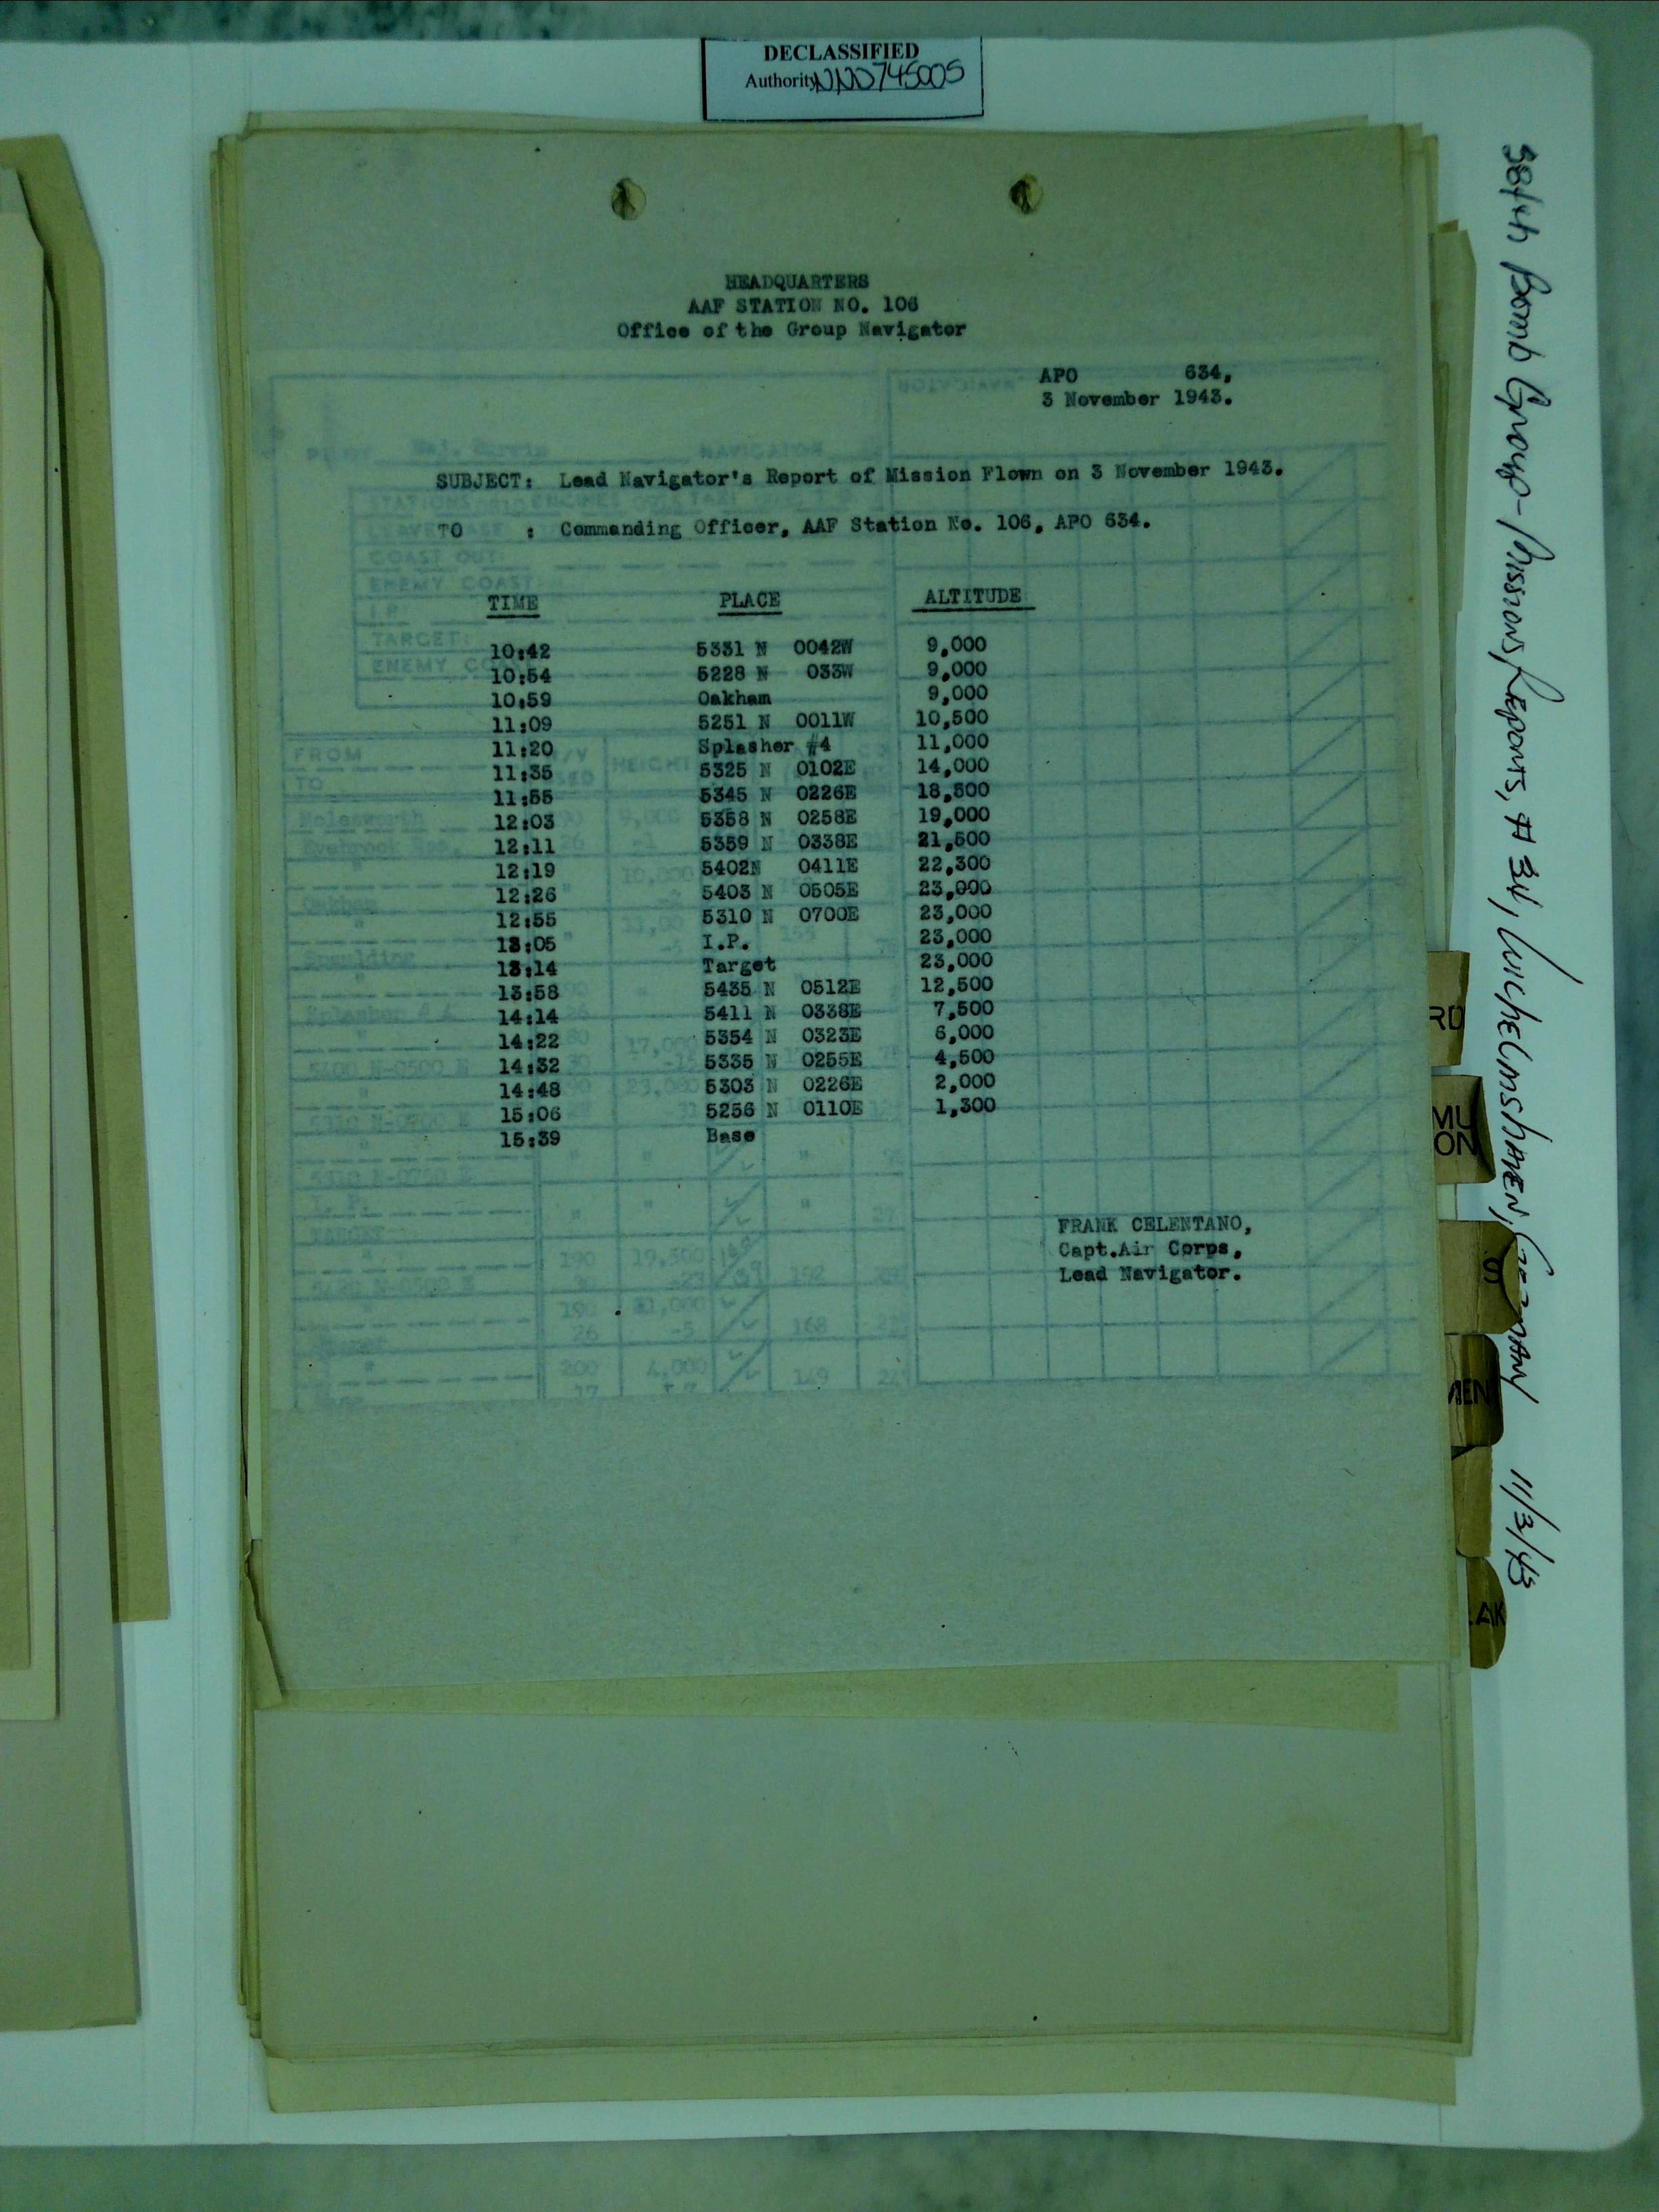 DECLASSIFIED
Authority NND745005
HEADQUARTERS
AAF STATION NO. 106
Office of the Group Navigator
APO 634,
3 November 1943.
SUBJECT: Lead Navigator's Report of Mission Flown on 3 November 1943.
TO : Commanding Officer, AAF Station No. 106, APO 634.
TIME PLACE ALTITUDE
10:42 5331 N 0042W 9,000
10:54 5228 N 033W 9,000
10:59 Oakham 9,000
11:09 5251 N 0011W 10,500
11:20 Splasher #4 11,000
11:35 5325 N 0102E 14,000
11:55 5345 N 0226E 18,500
12:03 5358 N 0258E 19,000
12:11 5359 N 0338E 21,500
12:19 5402N 0411E 22,300
12:26 5403 N 0505E 23,000
12:55 5310 N 0700E 23,000
13:05 I.P. 23,000
13:14 Target 23,000
13:58 5435 N 0512E 12,500
14:14 5411 N 0338E 7,500
14:22 5354 N 0323E 6,000
14:32 5335 N 0255E 4,500
14:48 5303 N 0226E 2,000
15:06 5256 N 0110E 1,300
15:39 Base
FRANK CELENTANO,
Capt.Air Corps,
Lead Navigator.
384th Bomb Group - Mission Reports, # 34, Wilhelmshaven, Germany 11/3/43
RD
MU
ON
S
MEN
AK